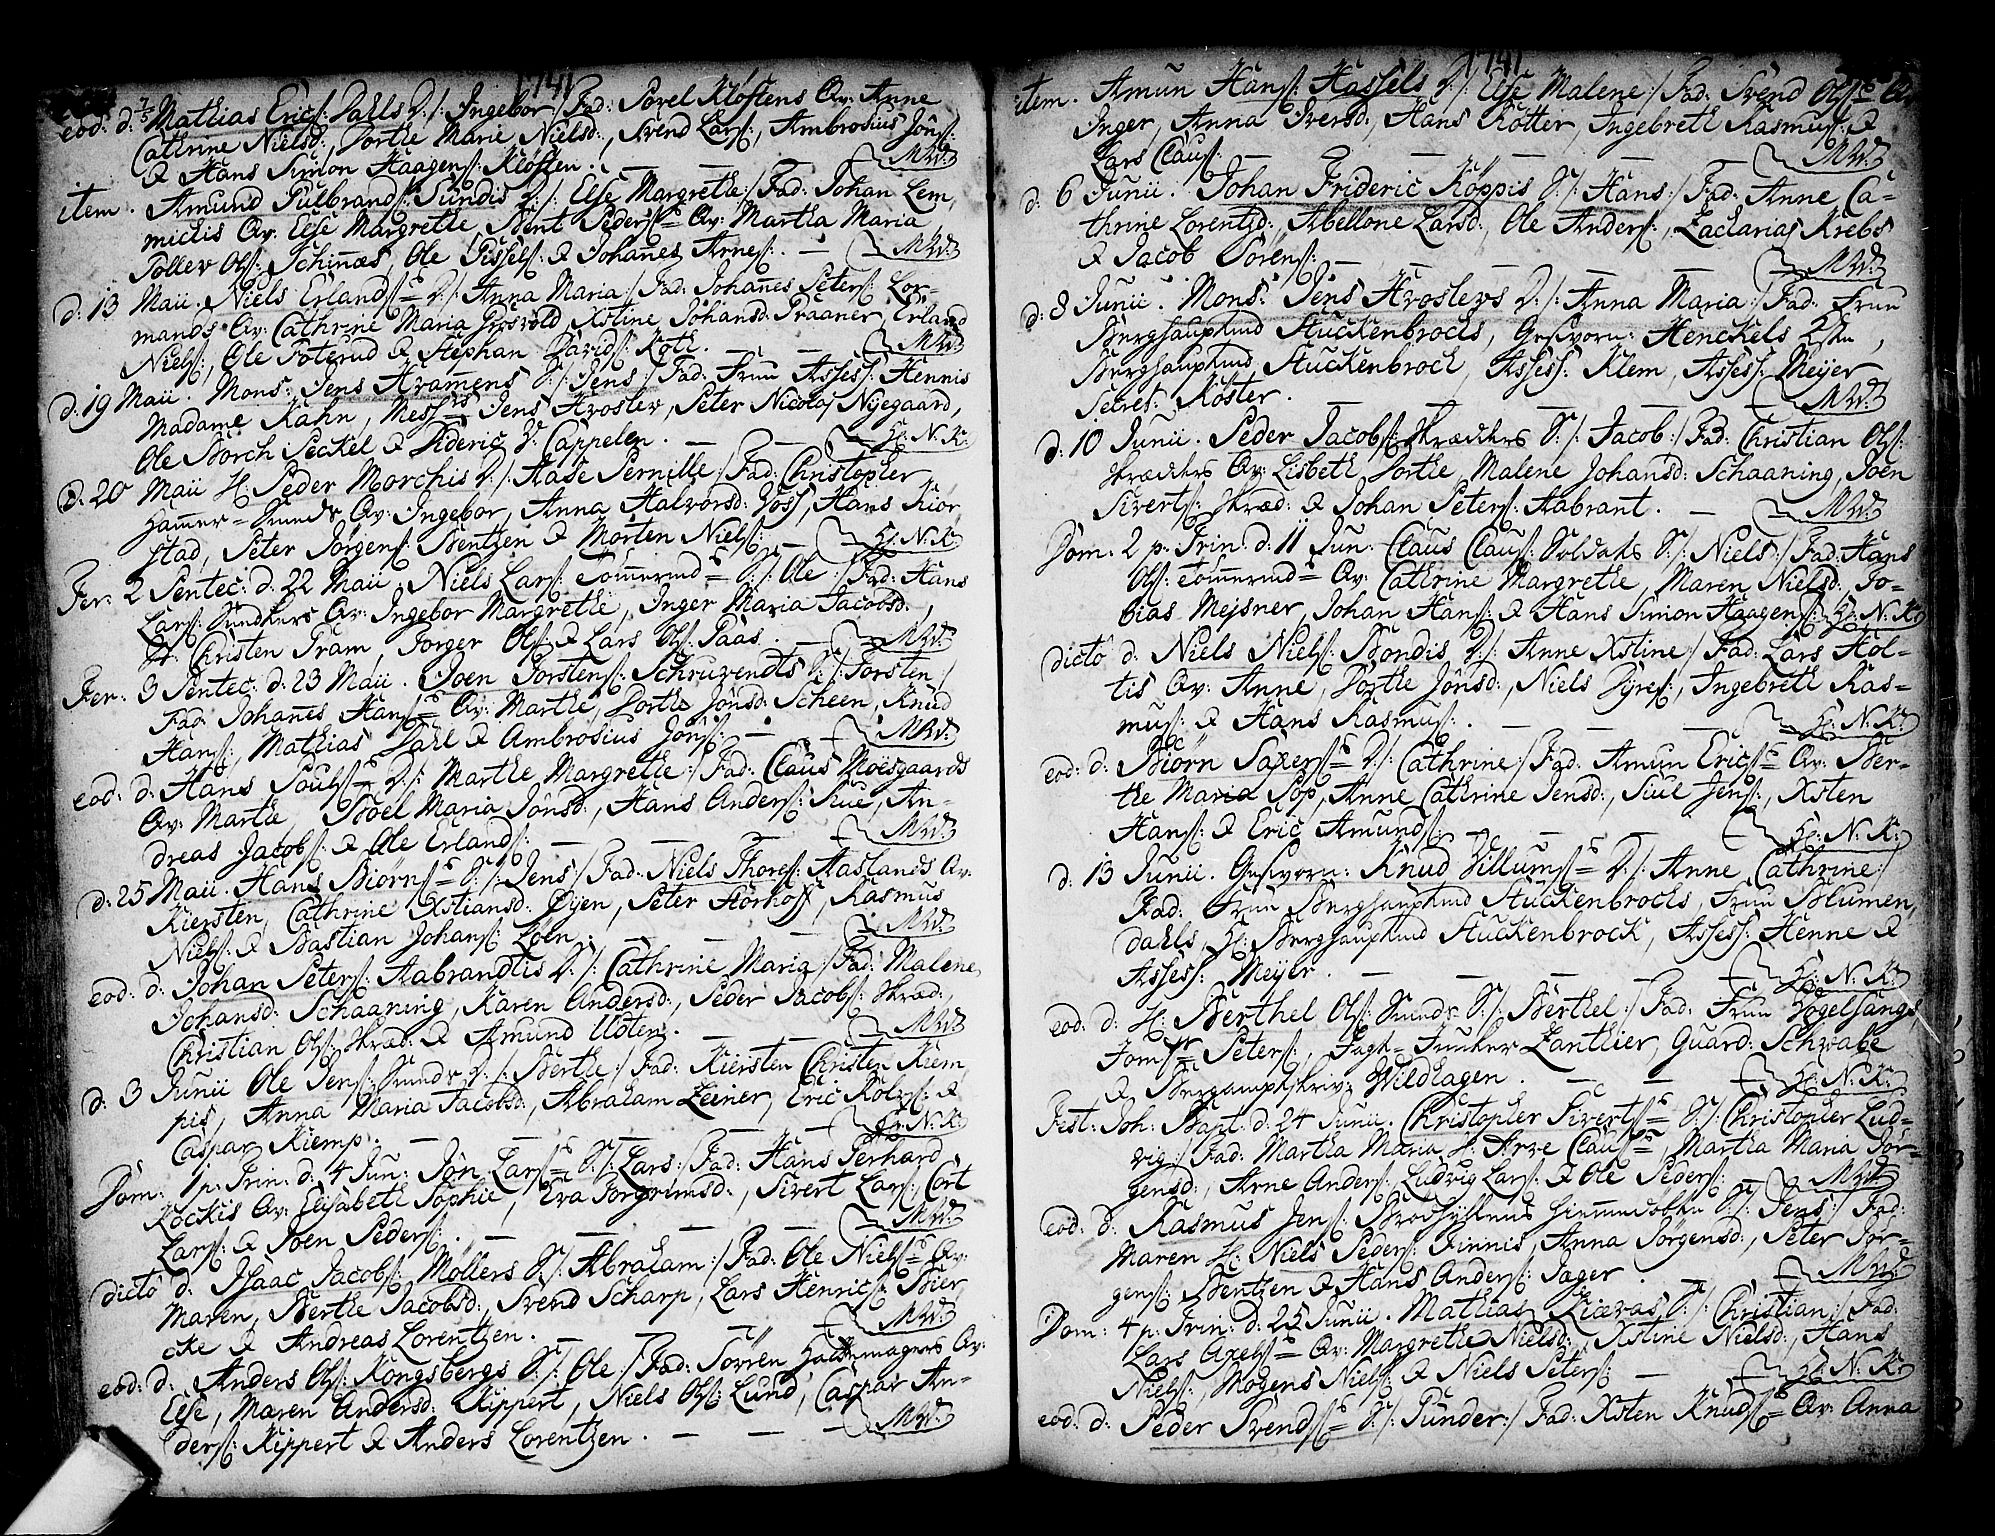 1741
eod: d: 7/5 Mathias Erics: Dahls D:/: Ingebor /: Fad: Sorel Klöftens Qv: Anne
Cathrine Nielsd:, Dorthe Marie Nielsd:, Svend Lars:, Ambrosius Jöns:
& Hans Simon Haagens: Klöften.
item. Amund Gulbrands: Sundis D:/: Else Margrethe:/ Fad: Johan Lem,
michs Qv: Else Margrethe, Bent Peders: Qv: Martha Maria
Tollev Ols: Schinnæs, Ole Sissels: & Johanes Arnes:.
d: 13 Maii. Niels Erlands: D:/: Anna Maria:/ Fad: Johannes Peters: Lor-
mands Qv: Cathrine Maria Grosvold, Xstine Johansd: Praaner, Erland
Niels:, Ole Foterud & Stephan Davids: Roth.
d: 19 Maii. Mons: Jens Hramens S:/: Jens:/ Fad: Fruu Assess: Hennis
Madame Rahn, Mess:rs Jens Hroslev, Peter Nicolaj Nyegaard,
Ole Borch Seckel & Fideric V: Cappelen. H: N: K:
d: 20 Maii H: Peder Morchis D:/: Aase Pernille:/ Fad: Christopher
Hammer-Smeds Qv: Ingebor, Anna Halvorsd: Voss, Hans Kiör,
stad, Peter Jörgens: Bentzen & Morten Niels: H: N: K:
Fer: 2 Pentec: d: 22 Maii. Niels Lars: Tömmermd: S:/: Ole:/ Fad: Hans
Lars: Snedkers Qv: Ingebor Margrethe, Inger Maria Jacobsd:,
Christen Fram, Torger Ols: & Lars Ols: Paas.
Fer: 3 Pentec: d: 23 Maii. Joen Torstens: Schruvendts S:/: Torsten:/
Fad: Johanes Hans: Qv: Marthe, Dorthe Jönsd: Scheen, Knud
Hans:, Mathias Dahl & Ambrosius Jöns:
eod: d: Hans Pouls: D:/: Marthe Margrethe:/ Fad: Claus Moesgaards
Qv: Marthe, Boel Maria Jönsd:, Hans Anders: Rue, An-
dreas Jacobs: & Ole Erlands:
d: 25 Maii. Hans Biörns: S:/: Jens:/ Fad: Niels Thores: Aaslands Qv:
Kiersten, Cathrine Xstiansd: Öyen, Peter Störhoff, Rasmus
Niels: & Bastian Johans: Loen.
eod: d: Johan Peters: Aabrandtis D:/: Cathrine Maria:/ Fad: Malene
Johansd: Schaaning, Karen Andersd:, Peder Jacobs: Skræd:,
Christian Ols: Skræd: & Amund Udten.
d: 3 Junii Ole Jens: Smeds D:/: Berthe:/ Fad: Kiersten Christen Kiem,
pis, Anna Maria Jacobsd:, Abraham Zeiner, Eric Rolvs: &
Caspar Kiemp. H: N: K:
Dom: 1 p: Trin: d: 4 Jun: Jön Lars: S:/: Lars:/ Fad: Hans Gerhard
Röckis Qv: Elisabeth Sophie, Eva Torgrimsd:, Sivert Lars:, Cort
Lars: & Joen Peders:
dicto d: Isaac Jacobs: Möllers S:/: Abraham:/ Fad: Ole Niels: Qv:
Maren, Berthe Jacobsd:, Svend Scharp, Lars Henric Bier,
cke & Andreas Lorentzen.
eod: d: Anders Ols: Kongsbergs S:/: Ole:/ Fad: Sören Hattemagers Qv:
Else, Maren Andersd: Kippert, Niels Ols: Lund, Caspar An-
ders: Kippert & Anders Lorentzen.
1741
item. Amun Hans: Hassels D:/: Else Malene:/ Fad: Svend Ols: Qv:
Inger, Anna Iversd:, Hans Rotter, Ingebreth Rasmus: &
Lars Claus:
d: 6 Junii. Johan Frideric Köppis S:/: Hans:/ Fad: Anne Ca-
thrine Lorentzd:, Abellone Larsd:, Ole Anders:, Zacharias Krebs
& Jacob Sörens:
d: 8 Junii. Mons: Jens Hroslevs D:/: Anna Maria:/ Fad: Fruu
Berghauptmd Stuckenbrocks, Geschworn: Henckels
Berghauptmd Stuckenbrock, Assess: Klem, Assess: Meyer
Secret: Köster.
d: 10 Junii. Peder Jacobs: Skræders S:/: Jacob:/ Fad: Christian Ols:
Skræders Qv: Lisbeth Dorthe, Malene Johansd: Schaaning, Joen
Siverts: Skræd: & Johan Peters: Aabrant.
Dom: 2 p: Trin: d: 11 Jun: Claus Claus: Soldats S:/: Niels:/ Fad: Hans
Ols: Tömmermd: Qv: Cathrine Margrethe, Maren Nielsd:, To-
bias Mejsner, Johan Hans: & Hans Simon Haagens: H: N: K:
dicto d: Niels Niels: Bondis D:/: Anne Xstine:/ Fad: Lars Hol-
tis Qv: Anne, Dorthe Jönsd:, Niels Dyres:, Ingebreth Ras-
mus: & Hans Rasmus:. H: N: K:
eod: d: Biörn Saxers: D:/: Cathrine:/ Fad: Amun Erics: Qv: Ber-
the Maria Sop, Anne Cathrine Jensd:, Siul Jens:, Xsten
Hans: & Eric Amunds: H: N: K:
d: 13 Junii. Geschworn: Knud Villums: D:/: Anne Cathrine:/
Fad: Fruu Berghauptmd Stuckenbrocks, Fruu Blumen,
dahls, H: Berghauptmd Stuckenbrock, Assess: Henne &
Assess: Meyer. H: N: K:
eod: d: H: Berthel Ols: Smeds S:/: Berthel:/ Fad: Fruu Vogelsangs,
Jomfr Peters:, Jagt-Juncker Zanthier, Guard: Schwabe
& Bergamptskriv: Wildhagen. H: N: K:
Fest: Joh: Bapt: d: 24 Junii. Christopher Siverts: S:/: Christopher Lud-
vig:/ Fad: Martha Maria H: Arve Claus:, Martha Maria Jör-
gensd:, Arne Anders:, Ludvig Lars: & Ole Peders:
eod: d: Rasmus Jens: S:/: Jens:/ Fad:
Maren H: Niels Peders: Finnis, Anna Jörgensd:, Peter Jör-
gens: Bentzen & Hans Anders: Jager.
Dom: 4 p: Trin: d: 25 Junii. Mathias Kiævas S:/: Christian:/ Fad:
Lars Axels: Qv: Margrethe Nielsd:, Xstine Nielsd:, Hans
Niels:, Mogens Niels: & Niels Peters: H: N: K:
eod: d: Peder Svends: S:/: Gunder:/ Fad: Xsten Knuds: Qv: Anna